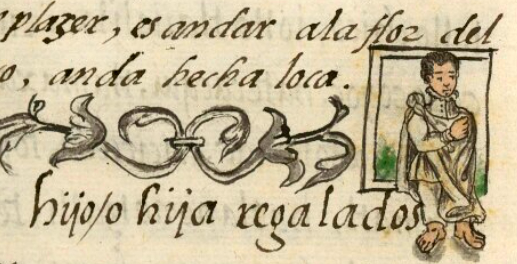 plazer, es andar ala flor del
o, anda hecha loca.
hijo/o hija regalados